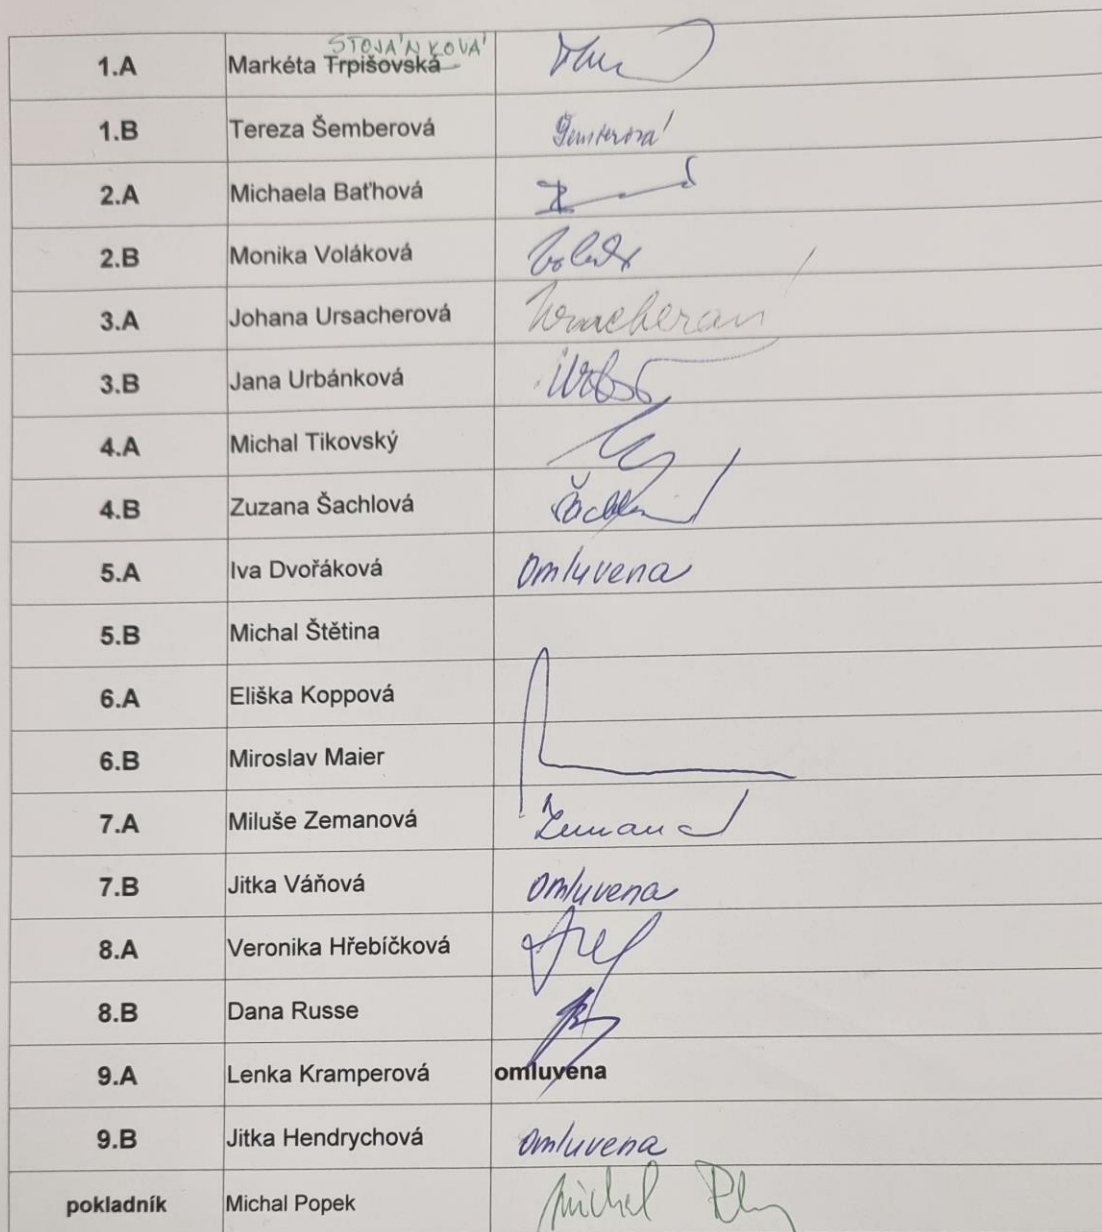 STOJÁNKOVÁ
1.A Markéta Trpišovská
1.B Tereza Šemberová Šemberová
2.A Michaela Baťhová
2.B Monika Voláková
3.A Johana Ursacherová Ursacherová
3.B Jana Urbánková
4.A Michal Tikovský
4.B Zuzana Šachlová
5.A Iva Dvořáková omluvena
5.B Michal Štětina
6.A Eliška Koppová
6.B Miroslav Maier
7.A Miluše Zemanová Zemanová
7.B Jitka Váňová omluvena
8.A Veronika Hřebíčková
8.B Dana Russe
9.A Lenka Kramperová omluvena
9.B Jitka Hendrychová omluvena
pokladník Michal Popek Michal